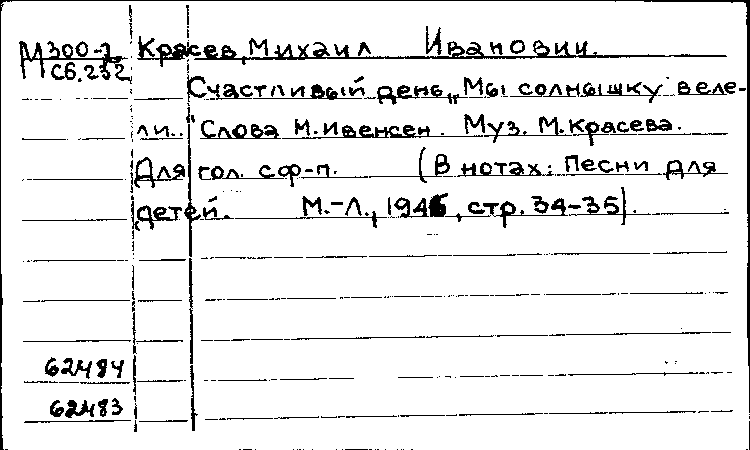 М300-2 Красев, Михаил Иванович.
Сб. 232
Счастливый день „Мы солнышку веле-
ли.." Слова М. Ивенсен. Муз. М. Красева.
Для гол. с ф-п. (В нотах: Песни для
детей. М.-Л., 1946, стр. 34-35).
62484
62483